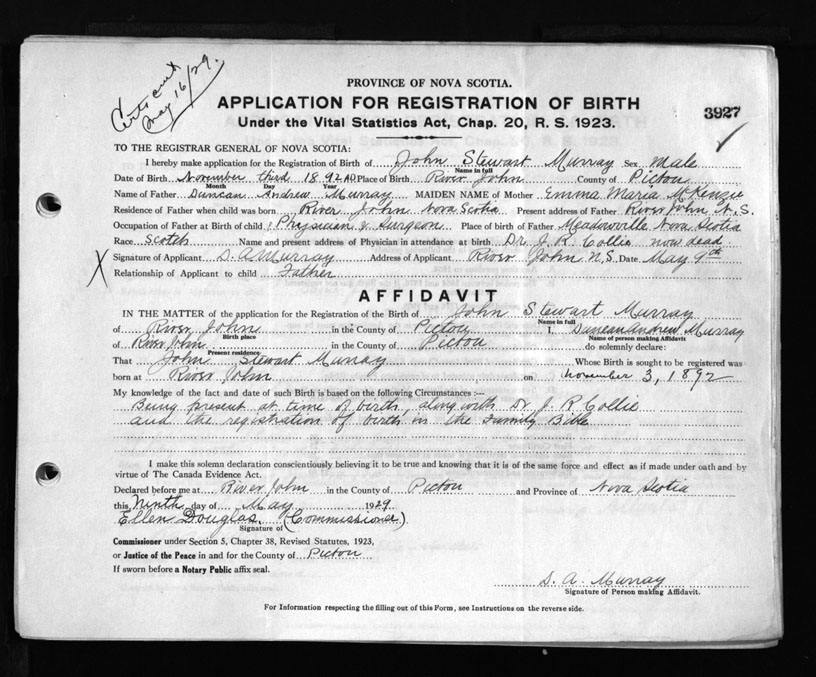 Cert sent
May 16/29.
PROVINCE OF NOVA SCOTIA.
APPLICATION FOR REGISTRATION OF BIRTH
3927
Under the Vital Statistics Act, Chap. 20, R. S. 1923.
TO THE REGISTRAR GENERAL OF NOVA SCOTIA:
I hereby make application for the Registration of Birth of John Stewart Murray Sex Male
Name in full
Date of Birth November third 1892 AD Place of Birth River John County of Pictou
Month Day Year
Name of Father Duncan Andrew Murray MAIDEN NAME of Mother Emma Maria McKenzie
Residence of Father when child was born River John Nova Scotia Present address of Father River John N.S.
Occupation of Father at Birth of child Physician & Surgeon Place of birth of Father Meadowville Nova Scotia
Race Scotch Name and present address of Physician in attendance at birth Dr. J. R. Collie now dead
X Signature of Applicant D. A Murray Address of Applicant River John N.S. Date May 9th
Relationship of Applicant to child Father
AFFIDAVIT
IN THE MATTER of the application for the Registration of the Birth of John Stewart Murray
Name in full
of River John in the County of Pictou I, Duncan Andrew Murray
Birth place Name of person making Affidavit
of River John in the County of Pictou do solemnly declare:
Present residence
That John Stewart Murray Whose Birth is sought to be registered was
born at River John on November 3, 1892
My knowledge of the fact and date of such Birth is based on the following Circumstances :—
Being present at time of birth, along with Dr J. R Collie
and the registration of birth in the Family Bible
I make this solemn declaration conscientiously believing it to be true and knowing that it is of the same force and effect as if made under oath and by
virtue of The Canada Evidence Act.
Declared before me at River John in the County of Pictou and Province of Nova Scotia
this Ninth day of May 1929
Ellen Douglas. (Commissioner)
Signature of
Commissioner under Section 5, Chapter 38, Revised Statutes, 1923,
or Justice of the Peace in and for the County of Pictou
If sworn before a Notary Public affix seal.
D. A. Murray
Signature of Person making Affidavit.
For Information respecting the filling out of this Form, see Instructions on the reverse side.